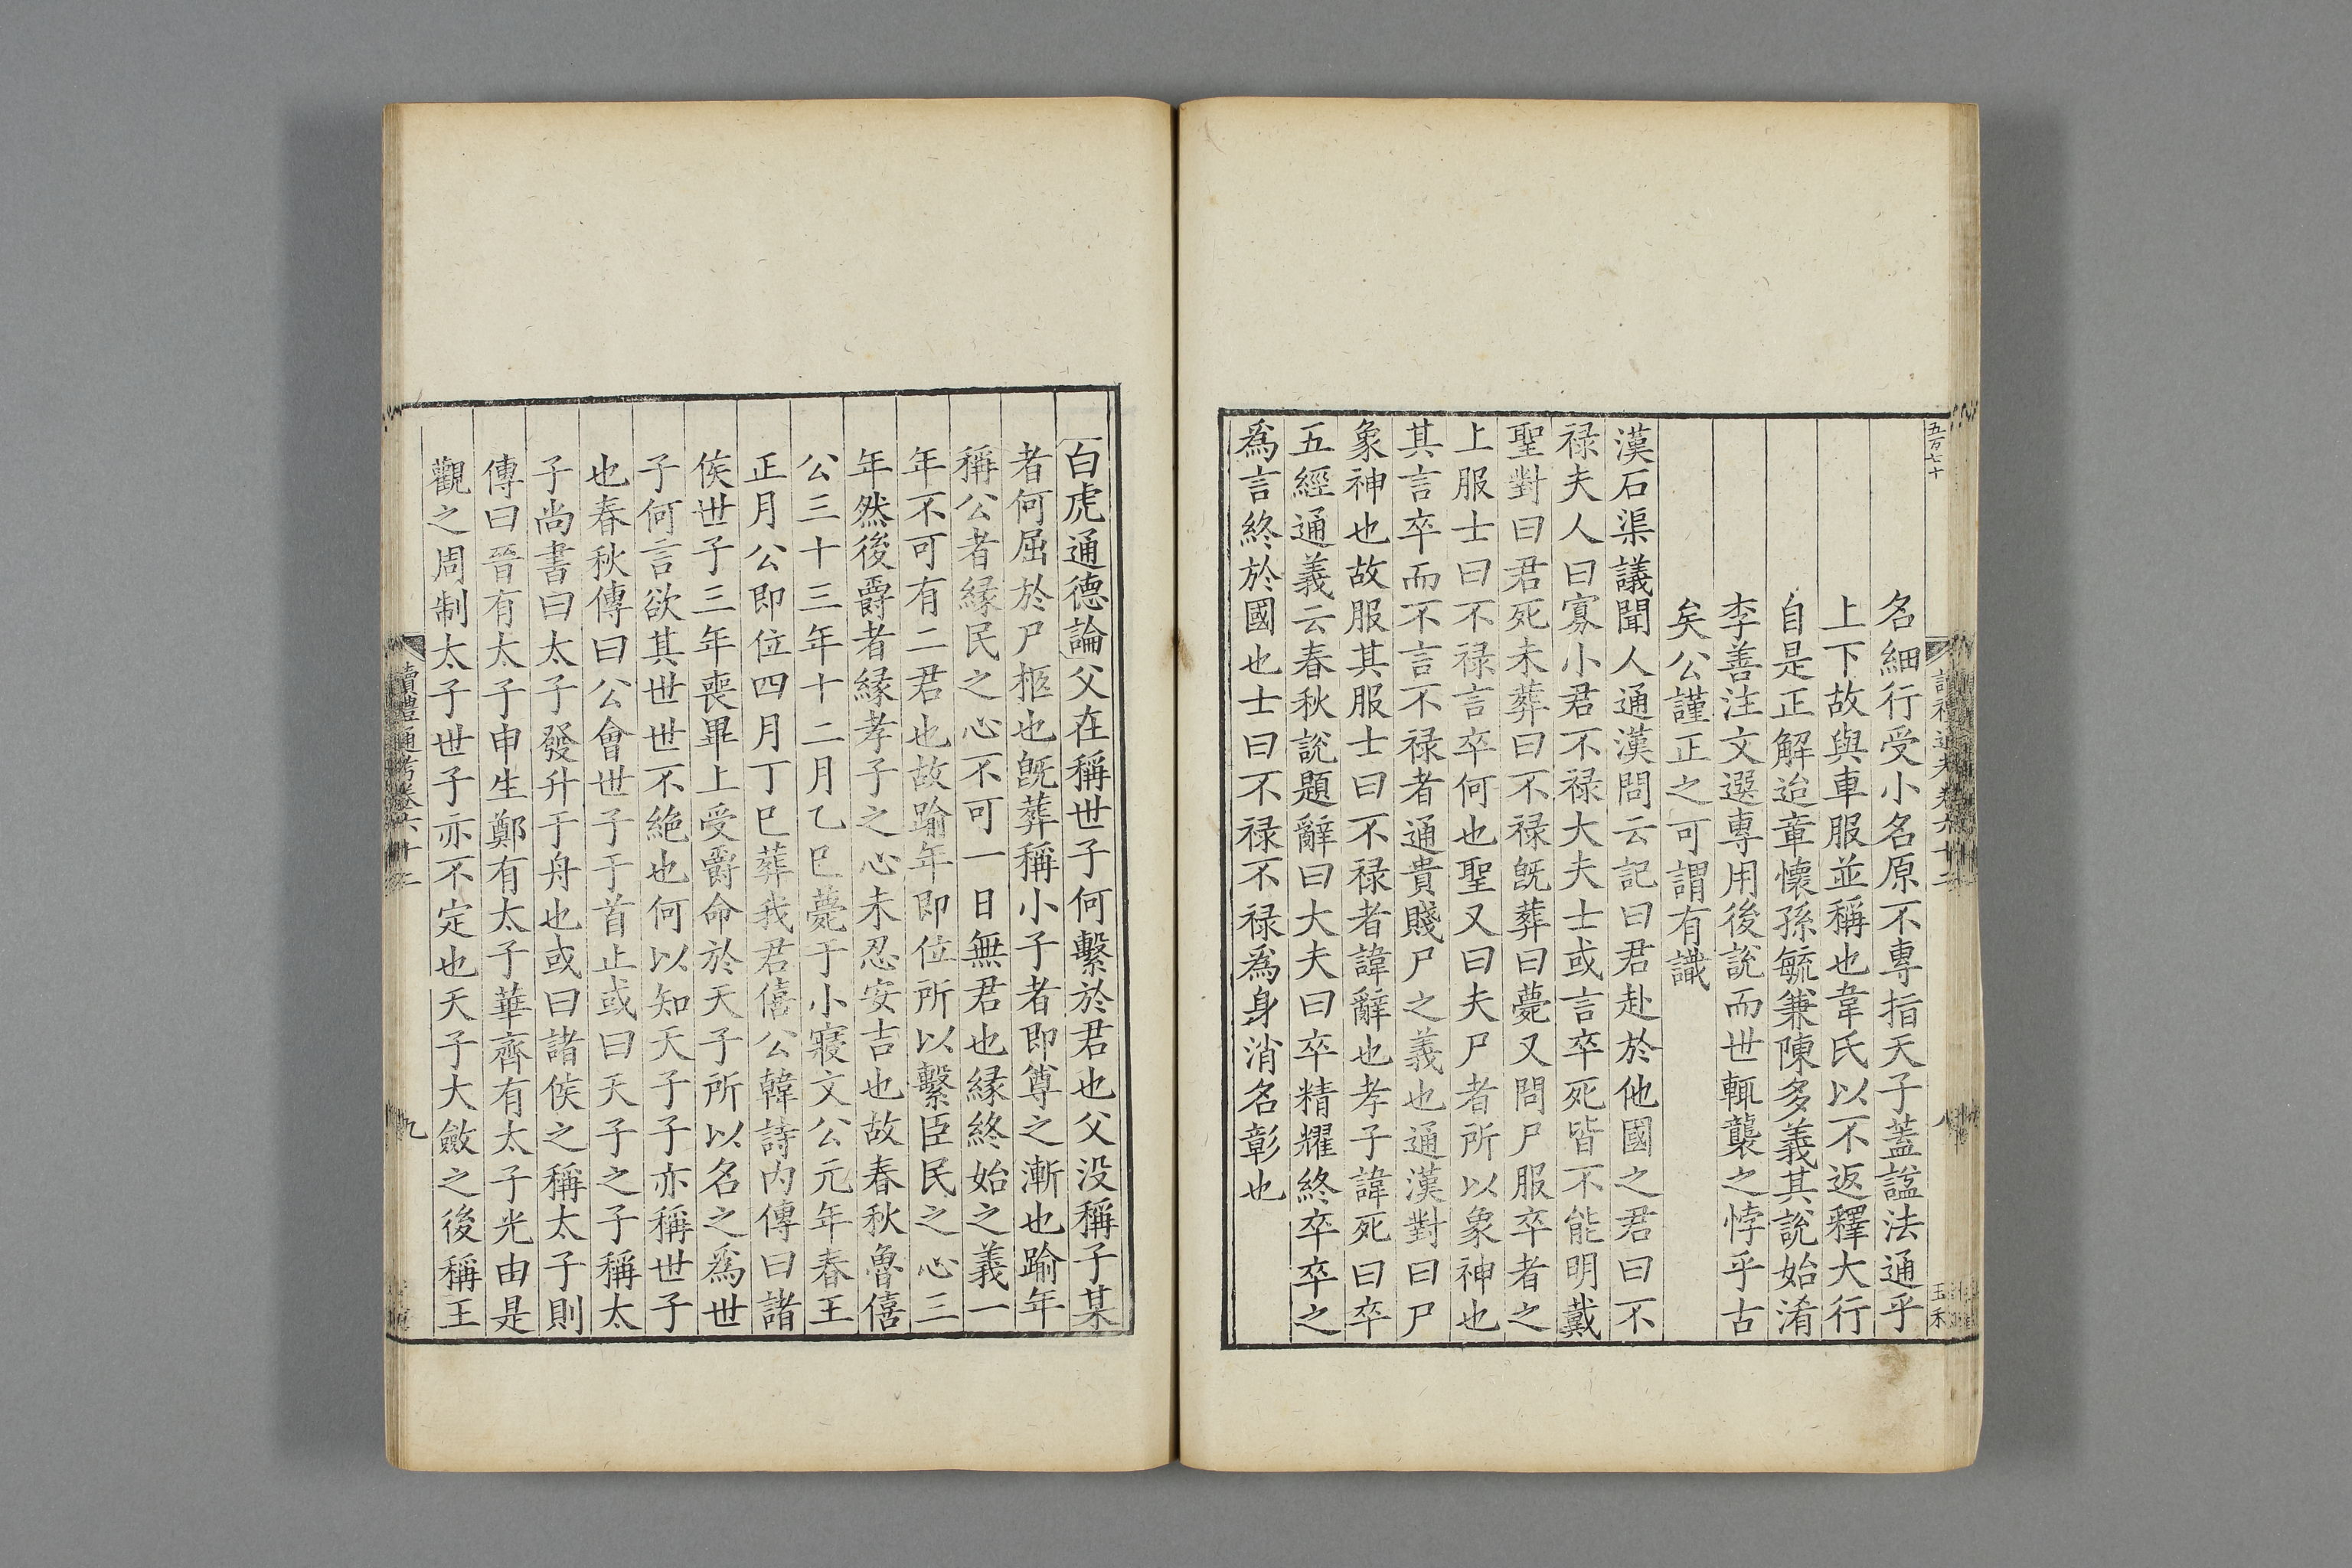 五百七十
名細行受小名原不專指天子蓋諡法通乎
上下故與車服並稱也韋氏以不返釋大行
自是正解迨章懷孫毓兼陳多義其說始淆
李善注文選專用後說而世輒襲之悖乎古
矣公謹正之可謂有識
漢石渠議聞人通漢問云記曰君赴於他國之君曰不
禄夫人曰寡小君不禄大夫士或言卒死皆不能明戴
聖對曰君死未葬曰不禄旣葬曰薨又問尸服卒者之
上服士曰不禄言卒何也聖又曰夫尸者所以象神也
其言卒而不言不禄者通貴賤尸之義也通漢對曰尸
象神也故服其服士曰不禄者諱辭也孝子諱死曰卒
五經通義云春秋說題辭曰大夫曰卒精耀終卒卒之
爲言終於國也士曰不禄不禄爲身消名彰也
八
玉禾
白虎通德論父在稱世子何繫於君也父没稱子某
者何屈於尸柩也旣葬稱小子者即尊之漸也踰年
稱公者緣民之心不可一日無君也緣終始之義一
年不可有二君也故踰年即位所以繫臣民之心三
年然後爵者緣孝子之心未忍安吉也故春秋魯僖
公三十三年十二月乙巳薨于小寢文公元年春王
正月公即位四月丁巳葬我君僖公韓詩内傳曰諸
侯世子三年喪畢上受爵命於天子所以名之爲世
子何言欲其世世不絶也何以知天子子亦稱世子
也春秋傳曰公會世子于首止或曰天子之子稱太
子尚書曰太子發升于舟也或曰諸侯之稱太子則
傳曰晉有太子申生鄭有太子華齊有太子光由是
觀之周制太子世子亦不定也天子大斂之後稱王
讀禮通考卷六十二
九